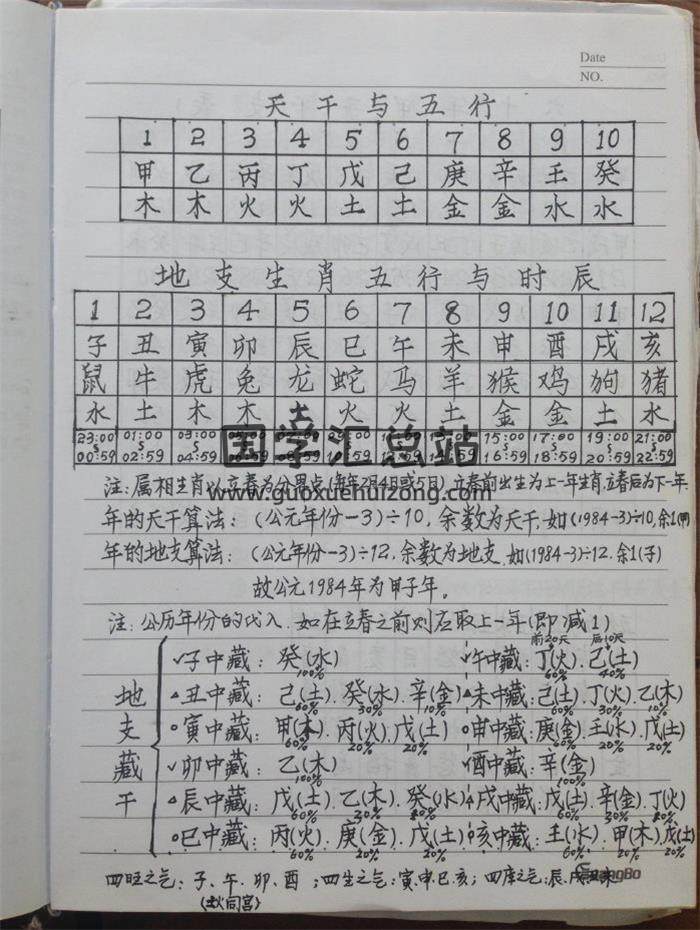 Date
NO.
天干与五行
1 2 3 4 5 6 7 8 9 10
甲 乙 丙 丁 戊 己 庚 辛 壬 癸
木 木 火 火 土 土 金 金 水 水
地支生肖五行与时辰
1 2 3 4 5 6 7 8 9 10 11 12
子 丑 寅 卯 辰 巳 午 未 申 酉 戌 亥
鼠 牛 虎 兔 龙 蛇 马 羊 猴 鸡 狗 猪
水 土 木 木 土 火 火 土 金 金 土 水
23:00 01:00 03:00 15:00 17:00 19:00 21:00
00:59 02:59 04:59 16:59 18:59 20:59 22:59
国学汇总站
www.guoxuehuizong.com
注:属相生肖以立春为分界点(每年2月4日或5日)立春前出生为上一年生肖,立春后为下一年.
年的天干算法:(公元年份-3)÷10,余数为天干,如(1984-3)÷10,余1(甲)
年的地支算法:(公元年份-3)÷12,余数为地支,如(1984-3)÷12.余1(子)
故公元1984年为甲子年。
注:公历年份的代入,如在立春之前则应取上一年(即减1)
前20天 后10天
地支藏干
√子中藏:癸(水) √午中藏:丁(火).己(土)
100% 60% 40%
△丑中藏:己(土).癸(水).辛(金) △未中藏:己(土).丁(火).乙(木)
60% 30% 10% 60% 30% 10%
○寅中藏:甲(木).丙(火).戊(土) ○申中藏:庚(金).壬(水).戊(土)
60% 20% 20% 60% 20% 20%
√卯中藏:乙(木) √酉中藏:辛(金)
100% 100%
△辰中藏:戊(土).乙(木).癸(水) △戌中藏:戊(土).辛(金).丁(火)
60% 30% 60% 30%
○巳中藏:丙(火).庚(金).戊(土) 亥中藏:壬(水).甲(木).戊(土)
60% 20% 20% 60% 20% 20%
四旺之气:子、午.卯、酉;四生之气:寅.申.巳.亥;四库之气:辰.戌.丑.未
(土火同宫)
GuangBo